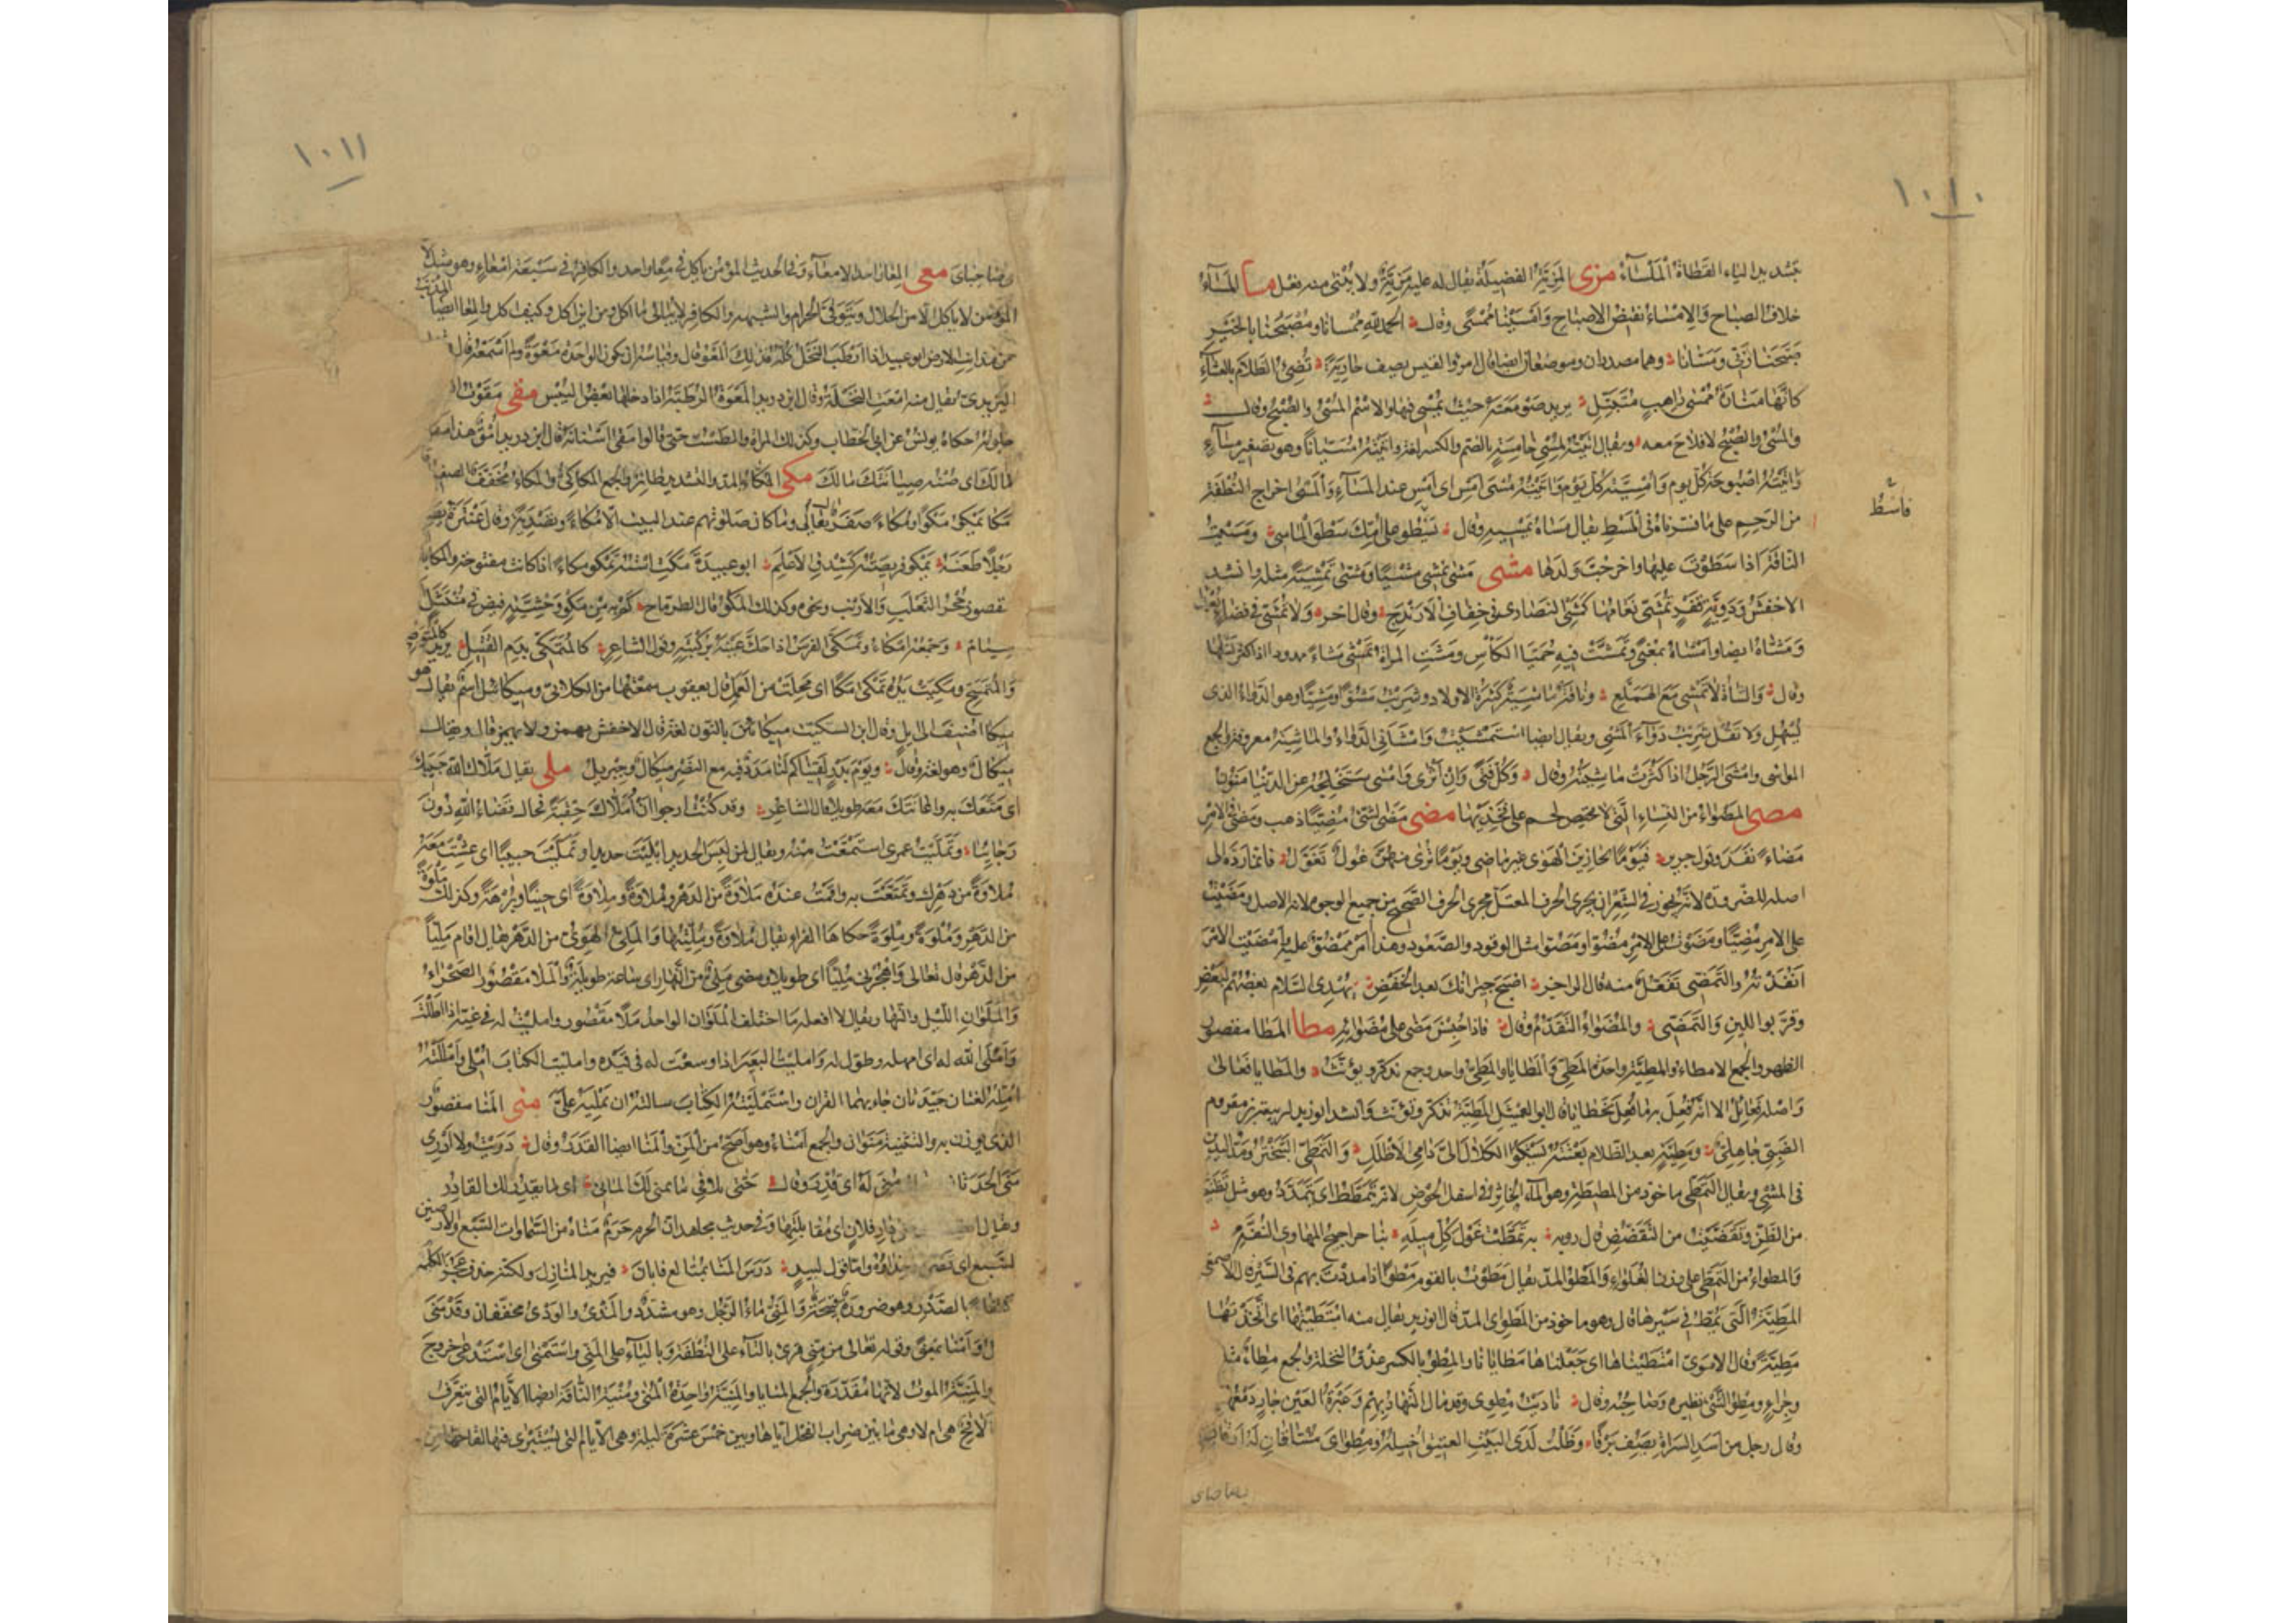 ١٠١٠
بتشديد الياء القطاة الملساء مزى المزية الفضيلة يقال له عليه مزية ولا يبنى منه فعل مسا المساء
خلاف الصباح والامساء نقيض الاصباح وامسينا ممسى وقال الحمد لله ممسانا ومصبحنا بالخير
صبحنا ربى ومسانا وهما مصدران وموضعان ايضا قال امرؤ القيس يصف جارية تضىء الظلام بالعشاء
كانها منارة ممسى راهب متبتل يريد صومعته حيث يمسى فيها والاسم المسى والصبح وقال
والمسى والصبح لا فلاح معه ويقال اتيته لمسى خامسة بالضم والكسر لغة واتيته مسيانا وهو تصغير مساء
واتيته اصبوحة كل يوم وامسية كل يوم واتيته مسى امس اى امس عند المساء والمسى اخراج النطفة
من الرحم على ما فسرناه فى المسط يقال مساه يمسيه وقال يسطو على امك سطو الماسى ومسيت
فاسط
الناقة اذا سطوت عليها واخرجت ولدها مشى مشى يمشى مشيا ومشى تمشية مثله وانشد
الاخفش ودوية قفر تمشى نعامها كمشى النصارى فى خفاف الارندج وقال اخر ولا تمشى فى فضاء
ومشاه ايضا وامشاه بمعنى وتمشت فيه حميا الكاس ومشت المراة تمشى مشاء ممدودا اذا كثر نسلها
وقال والشاة لا تمشى مع الهملع وناقة ماشية كثيرة الاولاد وشربت مشوا ومشيا وهو الدواء الذى
يسهل ولا تقل شربت دواء المشى ويقال ايضا استمشيت وامشانى الدواء والماشية معروفة والجمع
المواشى وامشى الرجل اذا كثرت ماشيته وقال وكل فتى وان اثرى وامشى ستخلجه عن الدنيا منون
مصى المصواء من النساء التى لا لحم على فخذيها مضى مضى الشىء مضيا ذهب ومضى فى الامر
مضاء نفذ وقول جرير فيوما يجازين الهوى غير ماضى ويوما ترى منهن غولا تغول فانما رده الى
اصله للضرورة لانه يجوز فى الشعر ان يجرى الحرف المعتل مجرى الحرف الصحيح من جميع الوجوه لانه الاصل ومضيت
على الامر مضيا ومضوت على الامر مضوا ومضوا مثل الوقود والصعود وهذا امر ممضو عليه وامضيت الامر
انفذته والتمضى تفعل منه قال الراجز اصبح جيرانك بعد الخفض يهدى السلام بعضهم لبعض
وقربوا للبين والتمضى والمضواء التقدم وقال فاذا خنسن مضى على مضوائه مطا المطا مقصور
الظهر والجمع الامطاء والمطية واحدة المطى والمطايا والمطى واحد وجمع يذكر ويؤنث والمطايا فعالى
واصله فعائل الا انه فعل به ما فعل بخطايا قال ابو العميثل المطية تذكر وتؤنث وانشد ابو زيد لربيعة بن مقروم
الضبى جاهلى ومطية بعد الظلام بعثته يشكو الكلال الى دامى الاظلل والتمطى التبختر ومد اليدين
فى المشى ويقال التمطى ماخوذ من المطيطة وهو الماء الخاثر فى اسفل الحوض لانه يتمطط اى يتمدد وهو مثل تظنيت
من الظن وتقضيت من التقضض قال روبه به تمطت غول كل ميله بنا حراجيج المهاوى النفه
والمطواء من التمطى على وزن الغلواء والمطو المد يقال مطوت بالقوم مطوا اذا مددت بهم فى السير قال الاصمعى
المطية التى تمط فى سيرها قال وهو ماخوذ من المطو اى المد قال ابو زيد يقال منه امتطيتها اى اتخذتها
مطية وقال الاموى امتطيناها اى جعلناها مطايانا والمطو بالكسر عذق النخلة والجمع مطاء مثل
وجراء ومطو الشىء نظيره وصاحبه وقال ناديت مطوى وقد مال النهار بهم وعبرة العين جار دمعها
وقال رجل من ازد السراة يصف برقا وظلت لدى البيت العتيق اخيله ومطواى مشتاقان له ارقان
١٠١١
اى صاحباى معى المعا واحد الامعاء وفى الحديث المؤمن ياكل فى معا واحد والكافر فى سبعة امعاء وهو مثل لان
المؤمن لا ياكل الا من الحلال ويتوقى الحرام والشبهة والكافر لا يبالى ما اكل ومن اين اكل وكيف اكل والمعا ايضا المذنب
من مذانب الارض ابو عبيد اذا ارطب النخل كله فذلك المعو قال وقياسه ان تكون الواحدة معوة ولم اسمعه قال
اليزيدى يقال منه امعت النخلة وقال ابن دريد المعوة الرطبة اذا دخلها بعض اليبس مقى مقوت
جلوته حكاه يونس عن ابى الخطاب وكذلك المراة والطست حتى قالوا مقى اسنانه قال ابن دريد امق هذا مقو
مالك اى صنه صيانتك مالك مكى المكاء بالمد والتشديد طائر والجمع المكاكى والمكاء مخفف الصفير
مكا يمكو مكوا ومكاء صفر قال تعالى وما كان صلوتهم عند البيت الا مكاء وتصدية وقال عنترة يصف
رجلا طعنه تمكو فريصته كشدق الاعلم ابو عبيدة مكت استه تمكو مكاء اذا كانت مفتوحة والمكا
مقصور جحر الثعلب والارنب ونحوه وكذلك المكو قال الطرماح كم به من مكو وحشية قيض فى منتثل
شيام وجمعه امكاء وتمكى الفرس اذا حك عينه بركبته وقول الشاعر كالمتمكى بدم القتيل يريد كالمتوضئ
والمتمسح ومكيت يده تمكى مكا اى مجلت من العمل قال يعقوب سمعتها من الكلابى وميكائيل اسم يقال هو
ميكا اضيف الى ايل وقال ابن السكيت ميكائين بالنون لغة قال الاخفش يهمز ولا يهمز قال ويقال
ميكال وهو لغة وقال ويوم بدر لقيناكم لنا مدد فيه مع النصر ميكال وجبريل ملى يقال ملاك الله حبيبك
اى متعك به واعاشك معه طويلا قال الشاعر وقد كنت ارجو ان املاك حقبة فحال قضاء الله دون
رجائيا وتمليت عمرى استمتعت منه ويقال لمن لبس الجديد ابليت جديدا وتمليت حبيبا اى عشت معه
ملاوة من دهرك وتمتعت به واقمت عنده ملاوة من الدهر وملاوة وملاوة اى حينا وبرهة وكذلك ملوة
من الدهر وملوة وملوة حكاها الفراء يقال ملاوة ومليتها والملى الهوى من الدهر يقال اقام مليا
من الدهر قال تعالى واهجرنى مليا اى طويلا ومضى ملى من النهار اى ساعة طويلة والملا مقصور الصحراء
والملوان الليل والنهار ويقال لا افعله ما اختلف الملوان الواحد ملا مقصور وامليت له فى غيه اذا اطلت
واملى الله له اى امهله وطول له وامليت البعير اذا وسعت له فى قيده وامليت الكتاب املى واملته
امله لغتان جيدتان جاء بهما القران واستمليته الكتاب سالته ان يمليه على منى المنا مقصور
الذى يوزن به والتثنية منوان والجمع امناء وهو افصح من المن والمنا ايضا القدر وقال دريت ولا ادرى
منى الحدثان منى له اى قدر وقال حتى تلاقى ما يمنى لك المانى اى ما يقدر لك القادر
ويقال دار فلان اى مقابلتها وفى حديث مجاهد ان الحرم حرم مناه من السماوات السبع والارضين
السبع اى قصده وحذاؤه واما قول لبيد درس المنا بمتالع فابان فيريد المنازل ولكنه حذف عجز الكلمة
اكتفاء بالصدر وهو ضرورة قبيحة والمنى ماء الرجل وهو مشدد والمذى والودى مخففان وقد منى
وامنا بمعنى وقوله تعالى من منى قرئ بالتاء على النطفة وبالياء على المنى واستمنى اى استدعى خروج
والمنية الموت لانها مقدرة والجمع المنايا والمنية واحدة المنى ومنية الناقة ايضا الايام التى يتعرف
الاقح هى ام لا وهى ما بين ضراب الفحل اياها وبين خمس عشرة ليلة وهى الايام التى يستبرى فيها لقاحها